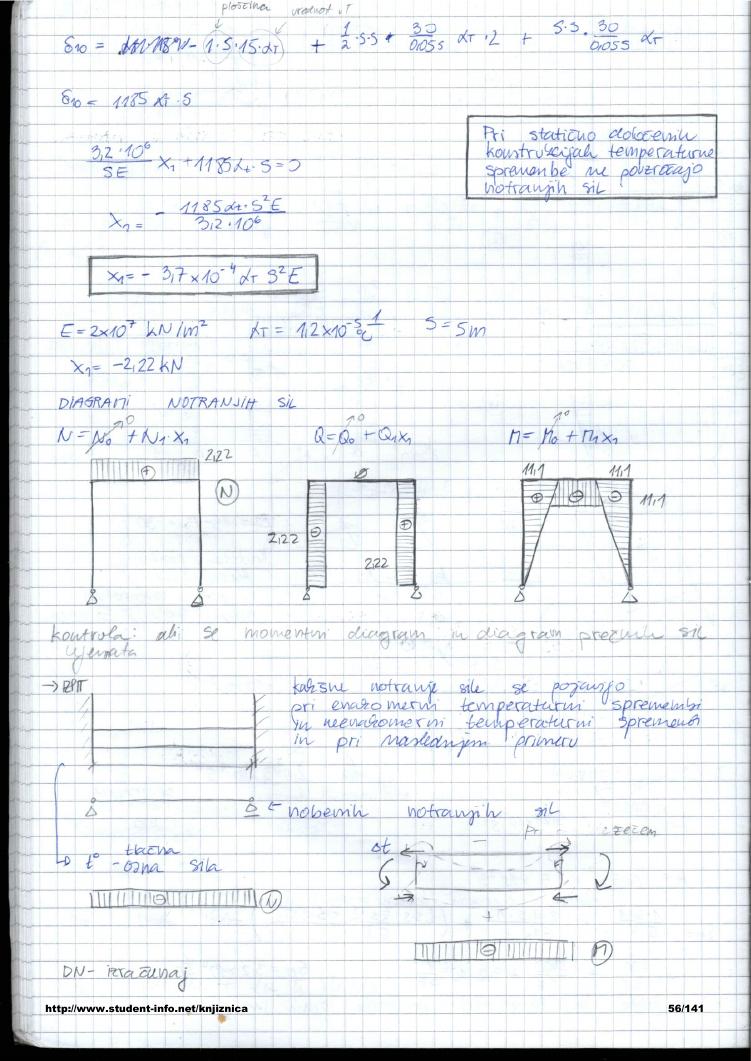 ploščina vrednost αT
δ10 = - 1·S·15·αT + 1/2·S·S · 30/0,055 αT·2 + S·S· 30/0,055 αT
δ10 = 1185 αT·S
3,2·10⁶/SE X1 + 1185 αT·S = 0
X1 = - 1185 αT·S²E/3,2·10⁶
X1 = - 3,7×10⁻⁴ αT S²E
Pri statično določenih
konstrukcijah temperaturne
spremembe ne povzročajo
notranjih sil
E = 2×10⁷ kN/m² αT = 1,2×10⁻⁵ 1/°C S = 5m
X1 = -2,22 kN
DIAGRAMI NOTRANJIH SIL
N = N0 + N1·X1 Q = Q0 + Q1X1 M = M0 + M1X1
0 0 0
2,22 N
2,22 2,22
11,1 11,1
11,1
kontrola: ali se momentni diagram in diagram prečnih sil
ujemata
→ IZPIT
kakšne notranje sile se pojavijo
pri enakomerni temperaturni spremembi
in neenakomerni temperaturni spremembi
in pri naslednjem primeru
← nobenih notranjih sil
t° tlačna
-osna sila
N
Δt
M
DN- izračunaj
http://www.student-info.net/knjiznica 56/141